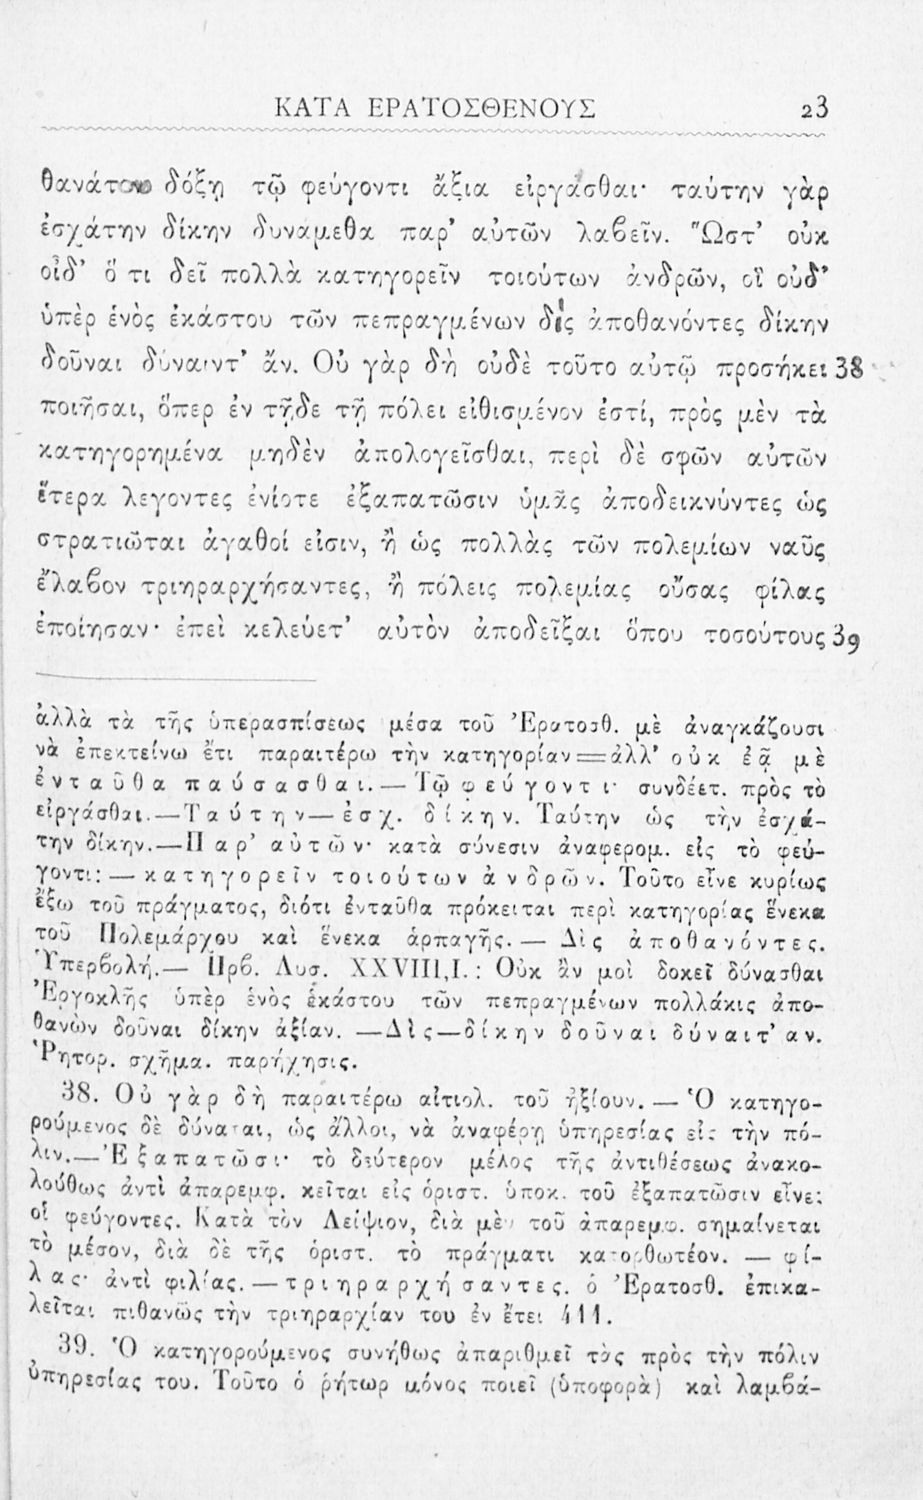 ΚΑΤΑ ΕΡΑΤΟΣΘΕΝΟΥΣ 23
θανάτου δόξῃ τῷ φεύγοντι ἄξια εἰργάσθαι· ταύτην γὰρ
ἐσχάτην δίκην δυνάμεθα παρ' αὐτῶν λαβεῖν. Ὥστ' οὐκ
οἶδ' ὅ τι δεῖ πολλὰ κατηγορεῖν τοιούτων ἀνδρῶν, οἳ οὐδ'
ὑπὲρ ἑνὸς ἑκάστου τῶν πεπραγμένων δὶς ἀποθανόντες δίκην
δοῦναι δύναιντ' ἄν. Οὐ γὰρ δὴ οὐδὲ τοῦτο αὐτῷ προσήκει 38
ποιῆσαι, ὅπερ ἐν τῇδε τῇ πόλει εἰθισμένον ἐστί, πρὸς μὲν τὰ
κατηγορημένα μηδὲν ἀπολογεῖσθαι, περὶ δὲ σφῶν αὐτῶν
ἕτερα λεγοντες ἐνίοτε ἐξαπατῶσιν ὑμᾶς ἀποδεικνύντες ὡς
στρατιῶται ἀγαθοί εἰσιν, ἢ ὡς πολλὰς τῶν πολεμίων ναῦς
ἔλαβον τριηραρχήσαντες, ἢ πόλεις πολεμίας οὔσας φίλας
ἐποίησαν· ἐπεὶ κελεύετ' αὐτὸν ἀποδεῖξαι ὅπου τοσούτους 39
ἀλλὰ τὰ τῆς ὑπερασπίσεως μέσα τοῦ Ἐρατοσθ. μὲ ἀναγκάζουσι
νὰ ἐπεκτείνω ἔτι παραιτέρω τὴν κατηγορίαν=ἀλλ' οὐκ ἐᾷ μὲ
ἐνταῦθα παύσασθαι.—Τῷ φεύγοντι· συνδέετ. πρὸς τὸ
εἰργάσθαι.—Ταύτην—ἐσχ. δίκην. Ταύτην ὡς τὴν ἐσχά-
την δίκην.—Παρ' αὐτῶν· κατὰ σύνεσιν ἀναφερομ. εἰς τὸ φεύ-
γοντι:—κατηγορεῖν τοιούτων ἀνδρῶν. Τοῦτο εἶνε κυρίως
ἔξω τοῦ πράγματος, διότι ἐνταῦθα πρόκειται περὶ κατηγορίας ἕνεκα
τοῦ Πολεμάρχου καὶ ἕνεκα ἁρπαγῆς.— Δὶς ἀποθανόντες.
Ὑπερβολή.— Πρβ. Λυσ. XXVIII,I.: Οὐκ ἂν μοὶ δοκεῖ δύνασθαι
Ἐργοκλῆς ὑπὲρ ἑνὸς ἑκάστου τῶν πεπραγμένων πολλάκις ἀπο-
θανὼν δοῦναι δίκην ἀξίαν. —Δὶς—δίκην δοῦναι δύναιτ' αν.
Ῥητορ. σχῆμα. παρήχησις.
38. Οὐ γὰρ δὴ παραιτέρω αἰτιολ. τοῦ ἠξίουν.— Ὁ κατηγο-
ρούμενος δὲ δύναται, ὡς ἄλλοι, νὰ ἀναφέρῃ ὑπηρεσίας εἰς τὴν πό-
λιν.—Ἐξαπατῶσι· τὸ δεύτερον μέλος τῆς ἀντιθέσεως ἀνακο-
λούθως ἀντὶ ἀπαρεμφ. κεῖται εἰς ὁριστ. ὑποκ. τοῦ ἐξαπατῶσιν εἶνε:
οἱ φεύγοντες. Κατὰ τὸν Λείψιον, διὰ μὲν τοῦ ἀπαρεμφ. σημαίνεται
τὸ μέσον, διὰ δὲ τῆς ὁριστ. τὸ πράγματι κατορθωτέον. — φί-
λας· ἀντὶ φιλίας.—τριηραρχήσαντες. ὁ Ἐρατοσθ. ἐπικα-
λεῖται πιθανῶς τὴν τριηραρχίαν του ἐν ἔτει 411.
39. Ὁ κατηγορούμενος συνήθως ἀπαριθμεῖ τὰς πρὸς τὴν πόλιν
ὑπηρεσίας του. Τοῦτο ὁ ῥήτωρ μόνος ποιεῖ (ὑποφορὰ) καὶ λαμβά-